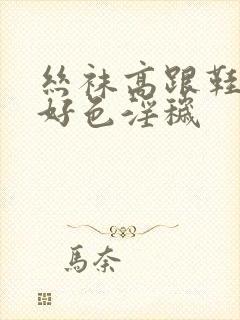 絲袜高跟鞋
好色淫穢
馬奈